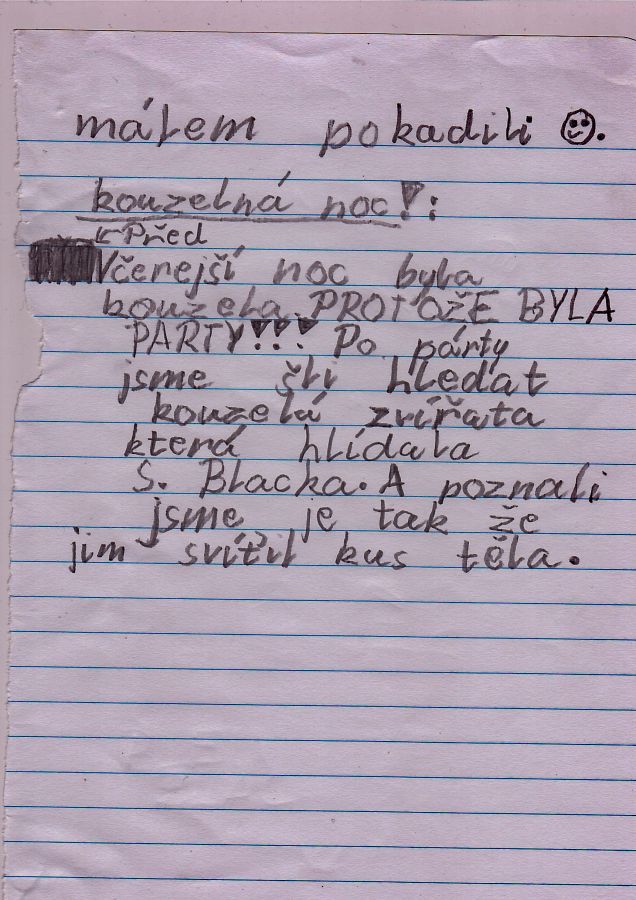 málem pokadili ☺.
kouzelná noc!:
↙Před
Včerejší noc byla
kouzela PROTOŽE BYLA
PARTY!!! Po párty
jsme šli hledat
kouzelá zvířata
která hlídala
S. Blacka. A poznali
jsme je tak že
jim svítil kus těla.